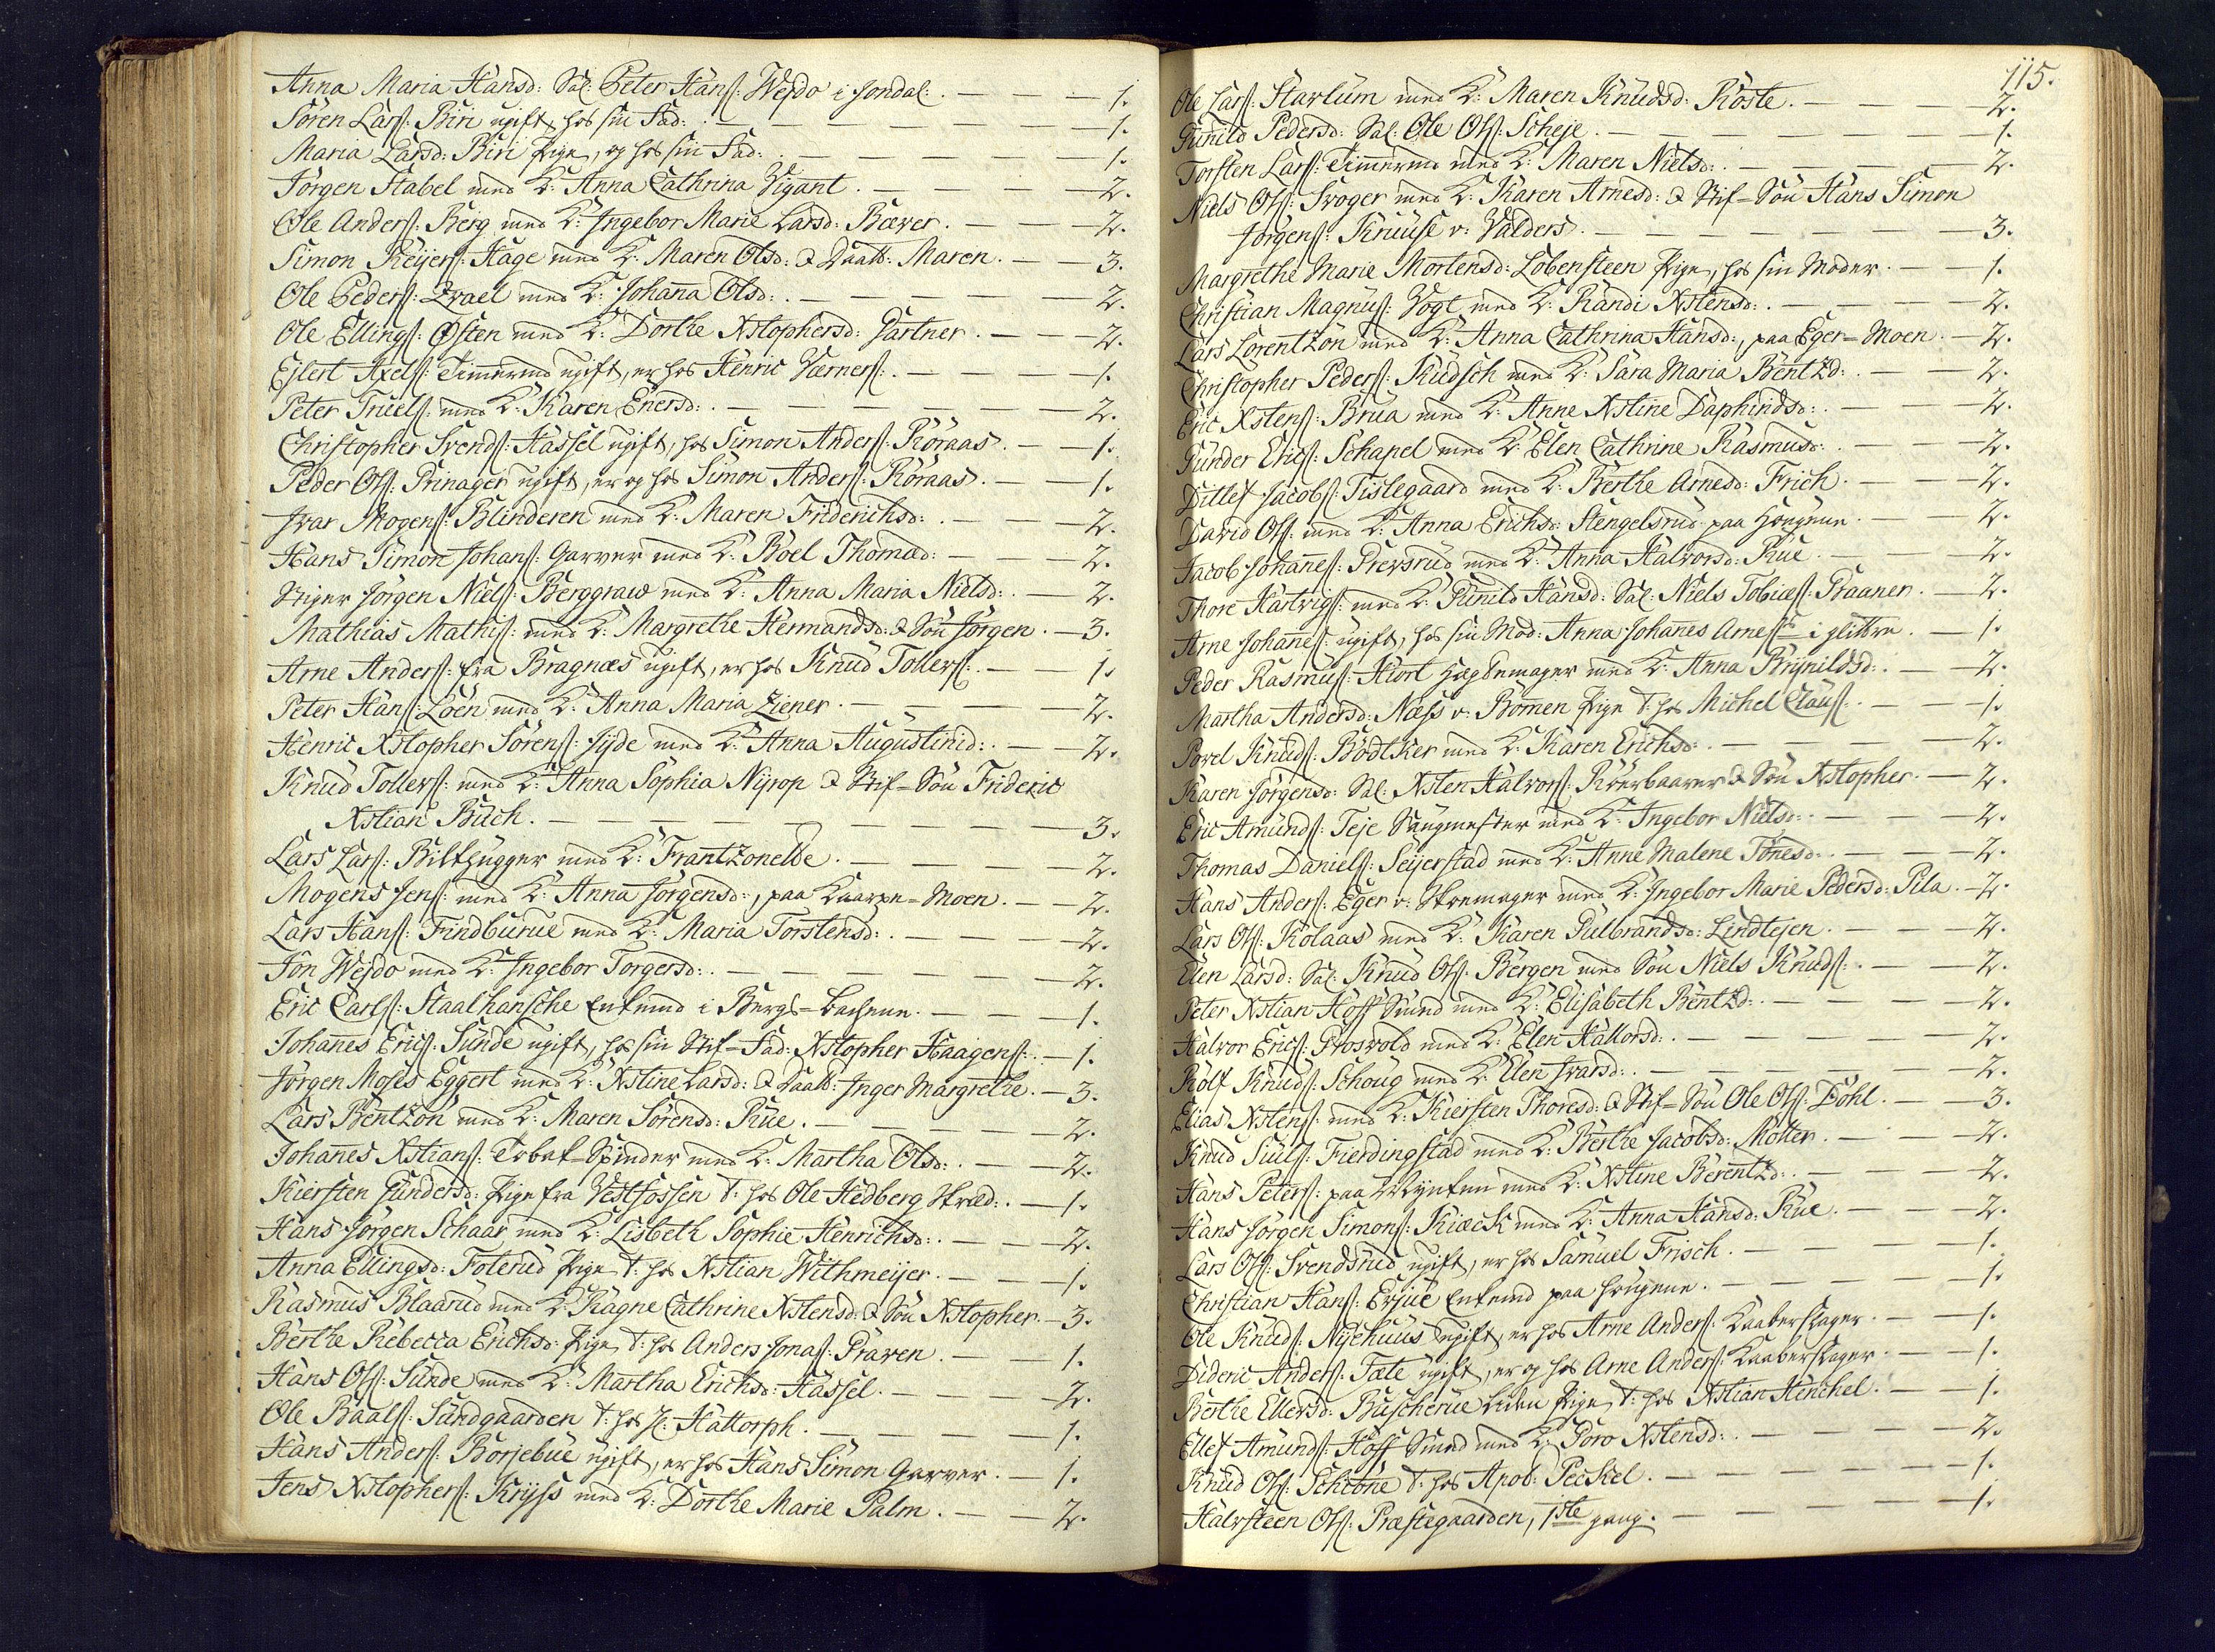 Anna Maria Hansd: Sal: Peter Hanſ: Wejdo i Jondal. — 1.
Sören Larſ: Biri ugift, hos sin Fad: — 1.
Maria Larsd: Biri Pige, og hos sin Fad: — 1.
Jörgen Stabel med K: Anna Cathrina Vigant. — 2.
Ole Anderſ: Berg med K: Ingebor Marie Larsd: Bæver. — 2.
Simon Reijerſ: Hage med K: Maren Olsd: & Daatt: Maren. — 3.
Ole Pederſ: Zrael med K: Johanna Olsd: — 2.
Ole Ellingſ: Østen med K: Dorthe Xstophersd: Gartner. — 2.
Ejlert Axelſ: Timmermd ugift, er hos Henric Værnerſ: — 1.
Peter Truelſ: med K: Karen Enersd: — 2.
Christopher Svendſ: Hassel ugift, hos Simon Anderſ: Röraas. — 1.
Peder Olſ: Prinager ugift, er og hos Simon Anderſ: Röraas. — 1.
Ivar Mogenſ: Blinderen med K: Maren Friderichsd: — 2.
Hans Simon Johanſ: Garver med K: Boel Thomæd: — 2.
Stiger Jörgen Nielſ: Berggraw med K: Anna Maria Nielsd: — 2.
Mathias Mathiſ: med K: Margrethe Hermandsd: & Sön Jörgen. — 3.
Arne Anderſ: fra Bragnæs ugift, er hos Knud Tollerſ: — 1.
Peter Hanſ: Löen med K: Anna Maria Ziener. — 2.
Henric Xstopher Sörenſ: Jyde med K: Anna Augustinid: — 2.
Knud Tollerſ: med K: Anna Sophia Nyrop & Stif=Sön Frideric
Xstian Buch. — 3.
Lars Larſ: Bilthugger med K: Frantzonette. — 2.
Mogens Jenſ: med K: Anna Jörgensd:, paa Kaarpe=Moen. — 2.
Lars Hanſ: Findburue med K: Maria Torstensd: — 2.
Jon Wejdo med K: Ingebor Torgersd: — 2.
Eric Carlſ: Staalhansche Enkemd i Bergs=Bachene. — 1.
Johannes Ericſ: Sunde ugift, hos sin Stif=Fad: Xstopher Haagenſ: — 1.
Jörgen Moses Eggert med K: Xstine Larsd: & Daatt: Inger Margrethe. — 3.
Lars Bentzon med K: Maren Sörensd: Rue. — 2.
Johannes Xstianſ: Tobak=Spinder med K: Martha Olsd: — 2.
Kiersten Gundersd: Pige fra Vestfossen t: hos Ole Hedberg Skræd: — 1.
Hans Jörgen Schaar med K: Lisbeth Sophie Henrichsd: — 2.
Anna Ellingsd: Foterud Pige t: hos Xstian Withmeijer. — 1.
Rasmus Blaarud med K: Ragne Cathrine Xstensd: & Sön Xstopher. — 3.
Berthe Rebecca Erichsd: Pige t: hos Anders Jonaſ: Praven. — 1.
Hans Olſ: Sunde med K: Martha Erichsd: Hassel. — 2.
Ole Baalſ: Sandgaarden t: hos Hr: Hattorph. — 1.
Hans Anderſ: Borjebue ugift, er hos Hans Simon Garver. — 1.
Jens Xstopherſ: Kryss med K: Dorthe Marie Palm. — 2.
115.
Ole Larſ: Starlum med K: Maren Knudsd: Röste. — 2.
Gunild Pedersd: Sal: Ole Olſ: Scheje. — 1.
Torsten Larſ: Timmermd med K: Maren Nielsd: — 2.
Niels Olſ: Svoger med K: Karen Arnesd: & Stif=Sön Hans Simon
Jörgenſ: Kruuse v: Valders. — 3.
Margrethe Marie Mortensd: Löbensteen Pige, hos sin Moder. — 1.
Christian Magnuſ: Vogt med K: Randi Xstensd: — 2.
Lars Lorentzon med K: Anna Cathrina Hansd:, paa Eger=Moen. — 2.
Christopher Pederſ: Kudsch med K: Sara Maria Bentzd: — 2.
Eric Xstenſ: Brua med K: Anne Xstine Daphindsd: — 2.
Gunder Ericſ: Schapel med K: Elen Cathrine Rasmusd: — 2.
Ditlef Jacobſ: Tislegaard med K: Berthe Arnesd: Frich. — 2.
David Olſ: med K: Anna Erichsd: Stengelsrud paa Haugene. — 2.
Jacob Johanneſ: Prevsrud med K: Anna Halvorsd: Rue. — 2.
Thore Hartvigſ: med K: Gunild Hansd: Sal: Niels Tobiæſ: Braaner. — 2.
Arne Johanneſ: ugift, hos sin Mod: Anna Johannes Arneſ: i glittre. — 1.
Peder Rasmuſ: Hiort Hattemager med K: Anna Brynildsd: — 2.
Martha Andersd: Næss v: Bömen Pige t: hos Michel Clauſ: — 1.
Povel Knudſ: Bödtker med K: Karen Erichsd: — 2.
Karen Jörgensd: Sal: Xsten Halvorſ: Röerbaarer & Sön Xstopher. — 2.
Eric Amundſ: Teje Saugmester med K: Ingebor Nielsd: — 2.
Thomas Danielſ: Seijerstad med K: Anne Malene Tönesd: — 2.
Hans Anderſ: Eger v: Skoemager med K: Ingebor Marie Pedersd: Pila. — 2.
Lars Olſ: Kolaas med K: Karen Gulbrandsd: Lindtejen. — 2.
Elen Larsd: Sal: Knud Olſ: Bergen med Sön Niels Knudſ: — 2.
Peter Xstian Hoff Smed med K: Elisabeth Bentzd: — 2.
Halvor Ericſ: Grosvold med K: Elen Hallorsd: — 2.
Rolf Knudſ: Schoug med K: Elen Ivarsd: — 2.
Elias Xstenſ: med K: Kiersten Thoresd: & Stif=Sön Ole Olſ: Döhl. — 3.
Knud Siulſ: Fierdingstad med K: Berthe Jacobsd: Moller. — 2.
Hans Peterſ: paa Mynten med K: Xstine Berentzd: — 2.
Hans Jörgen Simonſ: Kiæck med K: Anna Hansd: Rue. — 2.
Lars Olſ: Svendsrud ugift, er hos Samuel Frisch. — 1.
Christian Hanſ: Erjue Enkemd paa Haugene. — 1.
Ole Knudſ: Nyehuus ugift, er hos Arne Anderſ: Kaaberslager. — 1.
Dideric Anderſ: Fæte ugift, er og hos Arne Anderſ: Kaaberslager. — 1.
Berthe Ellersd: Buscherue Liden Pige t: hos Xstian Henchel. — 1.
Ellef Amundſ: Hoff Smed med K: Goro Xstensd: — 2.
Knud Olſ: Schöne t: hos Apot: Peckel. — 1.
Halvsteen Olſ: Præstegaarden, 1ste gang. — 1.